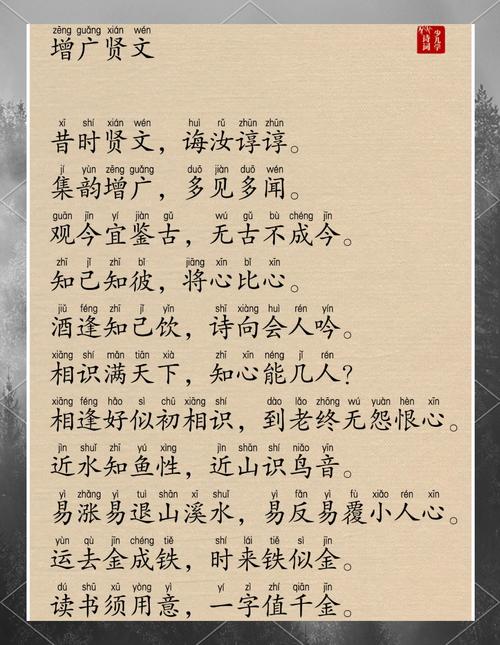 zēng guǎng xián wén
增广贤文
少儿学
诗词
xī shí xián wén huì rǔ zhūn zhūn
昔时贤文，诲汝谆谆。
jí yùn zēng guǎng duō jiàn duō wén
集韵增广，多见多闻。
guān jīn yí jiàn gǔ wú gǔ bù chéng jīn
观今宜鉴古，无古不成今。
zhī jǐ zhī bǐ jiāng xīn bǐ xīn
知己知彼，将心比心。
jiǔ féng zhī jǐ yǐn shī xiàng huì rén yín
酒逢知己饮，诗向会人吟。
xiāng shí mǎn tiān xià zhī xīn néng jǐ rén
相识满天下，知心能几人？
xiāng féng hǎo sì chū xiāng shí dào lǎo zhōng wú yuàn hèn xīn
相逢好似初相识，到老终无怨恨心。
jìn shuǐ zhī yú xìng jìn shān shí niǎo yīn
近水知鱼性，近山识鸟音。
yì zhǎng yì tuì shān xī shuǐ yì fǎn yì fù xiǎo rén xīn
易涨易退山溪水，易反易覆小人心。
yùn qù jīn chéng tiě shí lái tiě sì jīn
运去金成铁，时来铁似金。
dú shū xū yòng yì yí zì zhí qiān jīn
读书须用意，一字值千金。